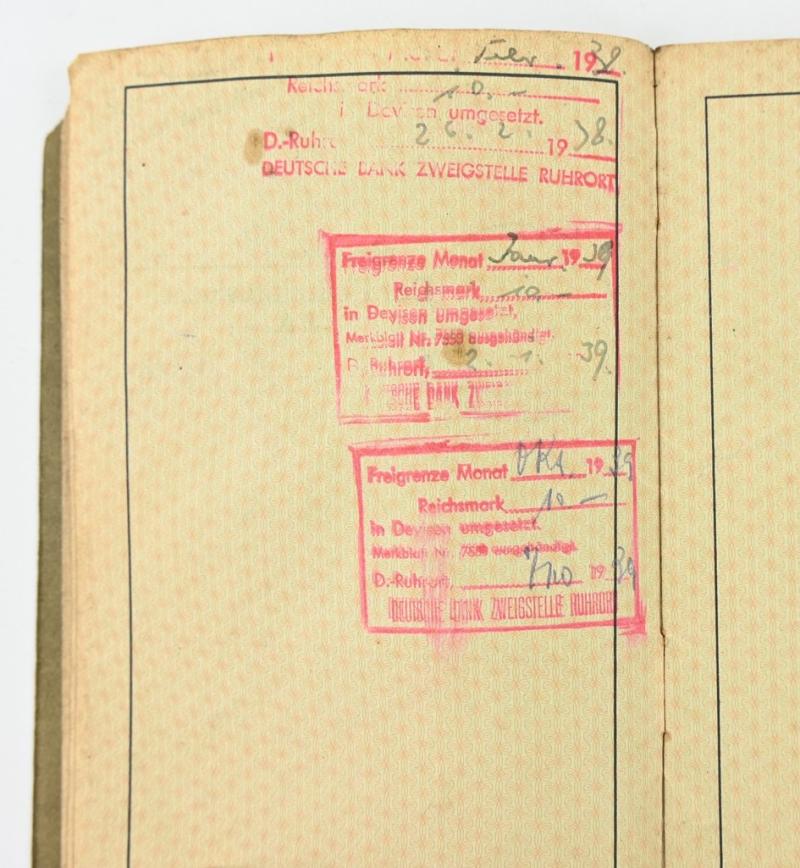 Febr. 1938.
Reichsmark 10.-
in Devisen umgesetzt.
D.-Ruhrort, 26. 2. 1938.
DEUTSCHE BANK ZWEIGSTELLE RUHRORT
Freigrenze Monat Janr. 1939
Reichsmark 10.-
in Devisen umgesetzt,
Merkblatt Nr. 7553 ausgehändigt.
D. Ruhrort, 2. 1. 39.
DEUTSCHE BANK
Freigrenze Monat Okt. 1939
Reichsmark 10.-
in Devisen umgesetzt.
Merkblatt Nr. ausgehändigt.
D.-Ruhrort, 7/10 1939
DEUTSCHE BANK ZWEIGSTELLE RUHRORT